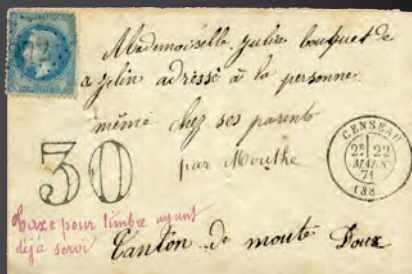 Mademoiselle julie bouquet de
a gelin adressé à la personne
même chez ses parents
par Mouthe
30
CENSEAU
2E 22
MARS
71
(38
taxe pour timbre ayant
déjà servi
Canton de moute Doux